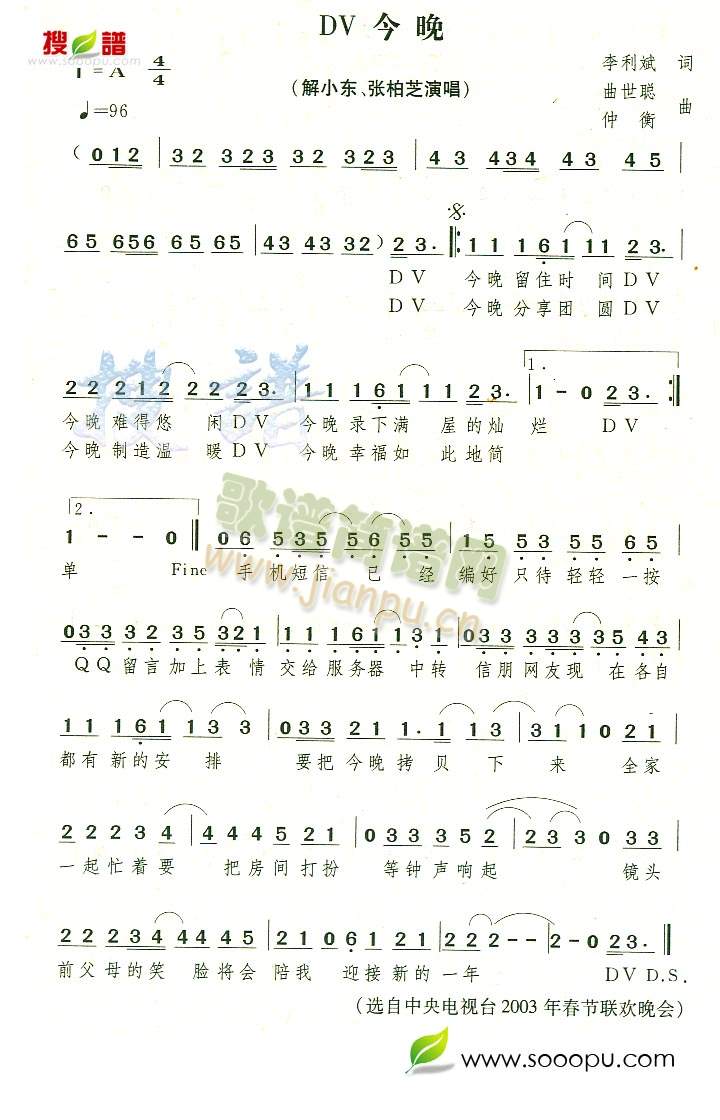 DV 今晚
搜谱
www.sooopu.com
1=A 4/4
李利斌 词
(解小东、张柏芝演唱)
曲世聪
仲衡 曲
♩=96
(012 | 32 323 32 323 | 43 434 43 45 |
65 656 65 65 | 43 433 32) 23. 𝄋 ‖: 11 161 11 23. |
DV 今晚留住时 间DV
DV 今晚分享团 圆DV
22 2212 22 23. | 11 161 11 23. | 1.
1-023. :‖
今晚难得悠 闲DV 今晚录下满 屋的灿 烂 DV
今晚制造温 暖DV 今晚幸福如 此地简
搜谱
歌谱简谱网
www.jianpu.cn
2.
1--0 ‖ 06 535 56 55 | 15 53 55 65 |
单 Fine 手机短信 已 经 编好只待轻轻一按
033 32 35 321 | 11 161 1131 | 033 333 35 43 |
QQ留言加上表 情交给服务器 中转 信朋网友现 在各自
11 161 133 | 033 21 1. 13 | 31 1021 |
都有新的安 排 要把今晚拷 贝 下 来 全家
22 234 | 444521 | 033 352 | 223 3033 |
一起忙着要 把房间打扮 等钟声响起 镜头
22 234 4445 | 21 061 21 21 | 222-- | 2-023. ‖
前父母的笑 脸将会陪我 迎接新的一年 DV D.S.
(选自中央电视台2003年春节联欢晚会)
www.sooopu.com